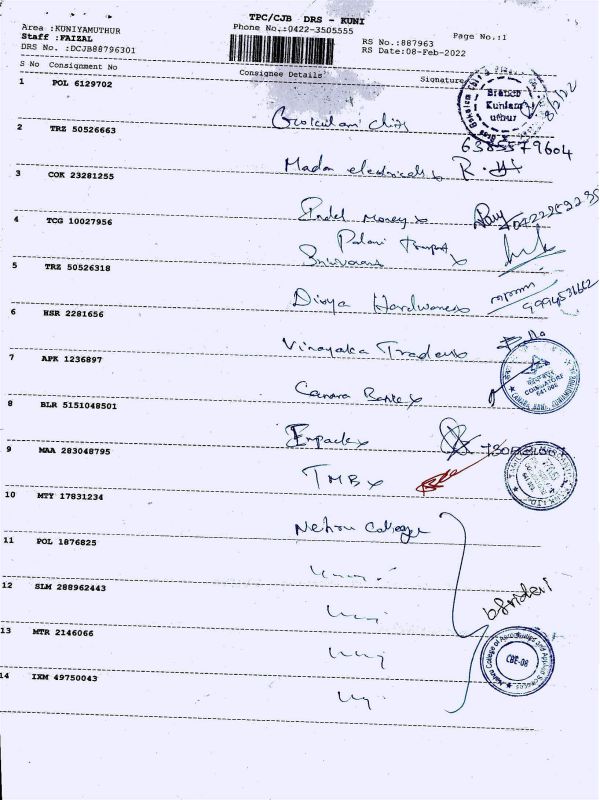 TPC/CJB DRS - KUNI
Area :KUNIYAMUTHUR
Phone No.:0422-3505555
Page No.:1
Staff :FAIZAL
RS No.:887963
DRS No. :DCJB88796301
RS Date:08-Feb-2022
S No Consignment No
Consignee Details
Signature
1 POL 6129702
Branch
Kuniam
uthur
8/2/22
2 TRZ 50526663
6385579604
Madan electricals
3 COK 23281255
Indel Money
4 TCG 10027956
Palani Transport
Srinivasan
5 TRZ 50526318
Divya Hardwares
6 HSR 2281656
Vinayaka Traders
7 APK 1236897
Canara Bank
COIMBATORE
641008
8 BLR 5151048501
Empack
9 MAA 283048795
TMB
10 MTY 17831234
Nehru College
11 POL 1876825
12 SLM 288962443
13 MTR 2146066
Nehru College of Aeronautics and Applied Sciences
CBE-08
14 IXM 49750043